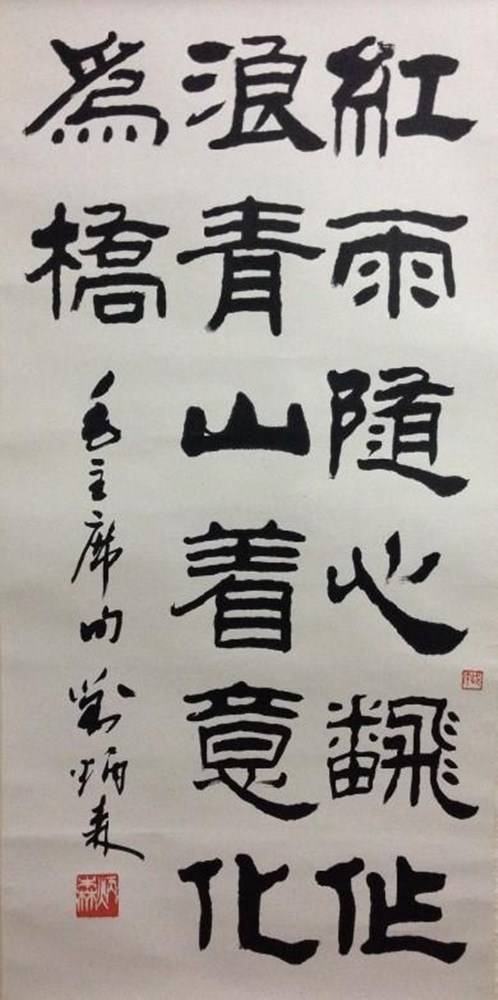 紅雨隨心飜作
浪青山着意化
爲橋
毛主席句 劉炳森
炳森